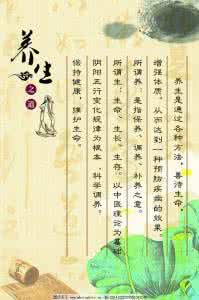 养生之道
养生是通过各种方法，善待生命，
增强体质，从而达到一种预防疾病的效果。
所谓养：是指保养、调养、补养之意。
所谓生：生命、生长、生存。以中医理论为基础
阴阳五行变化规律为根本，科学调养。
保持健康，维护生命。